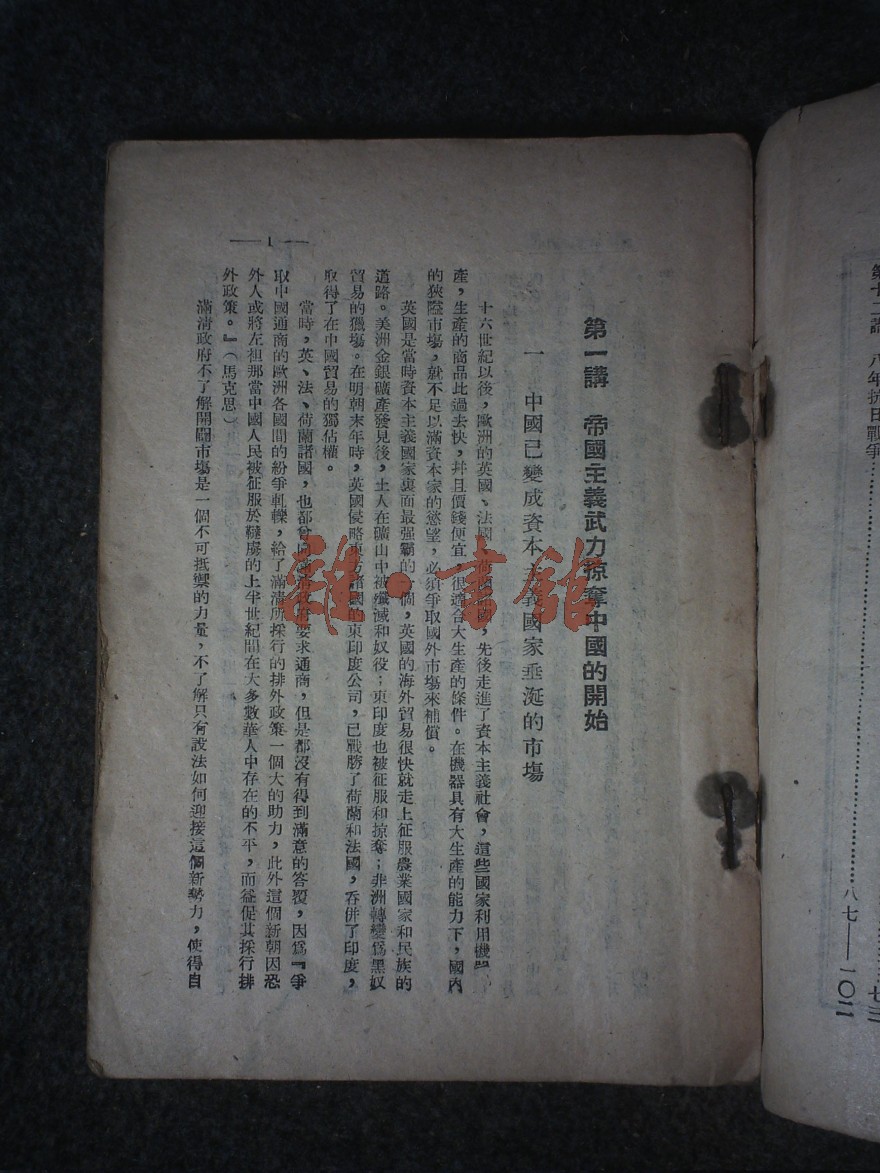 第一講　帝國主義武力掠奪中國的開始
一　中國已變成資本主義國家垂涎的市場
十六世紀以後，歐洲的英國、法國、荷蘭諸國，先後走進了資本主義社會，這些國家利用機器
產，生產的商品比過去快，幷且價錢便宜，很適合大生產的條件。在機器具有大生產的能力下，國內
的狹隘市塲，就不足以滿資本家的慾望，必須爭取國外市塲來補償。
英國是當時資本主義國家裏面最强霸的一個，英國的海外貿易很快就走上征服農業國家和民族的
道路。美洲金銀礦產發見後，土人在礦山中被殲滅和奴役；東印度也被征服和掠奪；非洲轉變爲黑奴
貿易的獵塲。在明朝末年時，英國侵略東方諸國的東印度公司，已戰勝了荷蘭和法國，吞併了印度，
取得了在中國貿易的獨佔權。
當時，英、法、荷蘭諸國，也都會向滿清政府要求通商，但是都沒有得到滿意的答覆，因爲『爭
取中國通商的歐洲各國間的紛爭軋轢，給了滿清所採行的排外政策一個大的助力，此外這個新朝因恐
外人或將左袒那當中國人民被征服於韃虜的上半世紀間在大多數華人中存在的不平，而益促其採行排
外政策。』（馬克思）
滿清政府不了解開闢市塲是一個不可抵禦的力量，不了解只有設法如何迎接這個新勢力，使得自
1
第十二講　八年抗日戰爭……八七——一〇二
七三
雜·書館